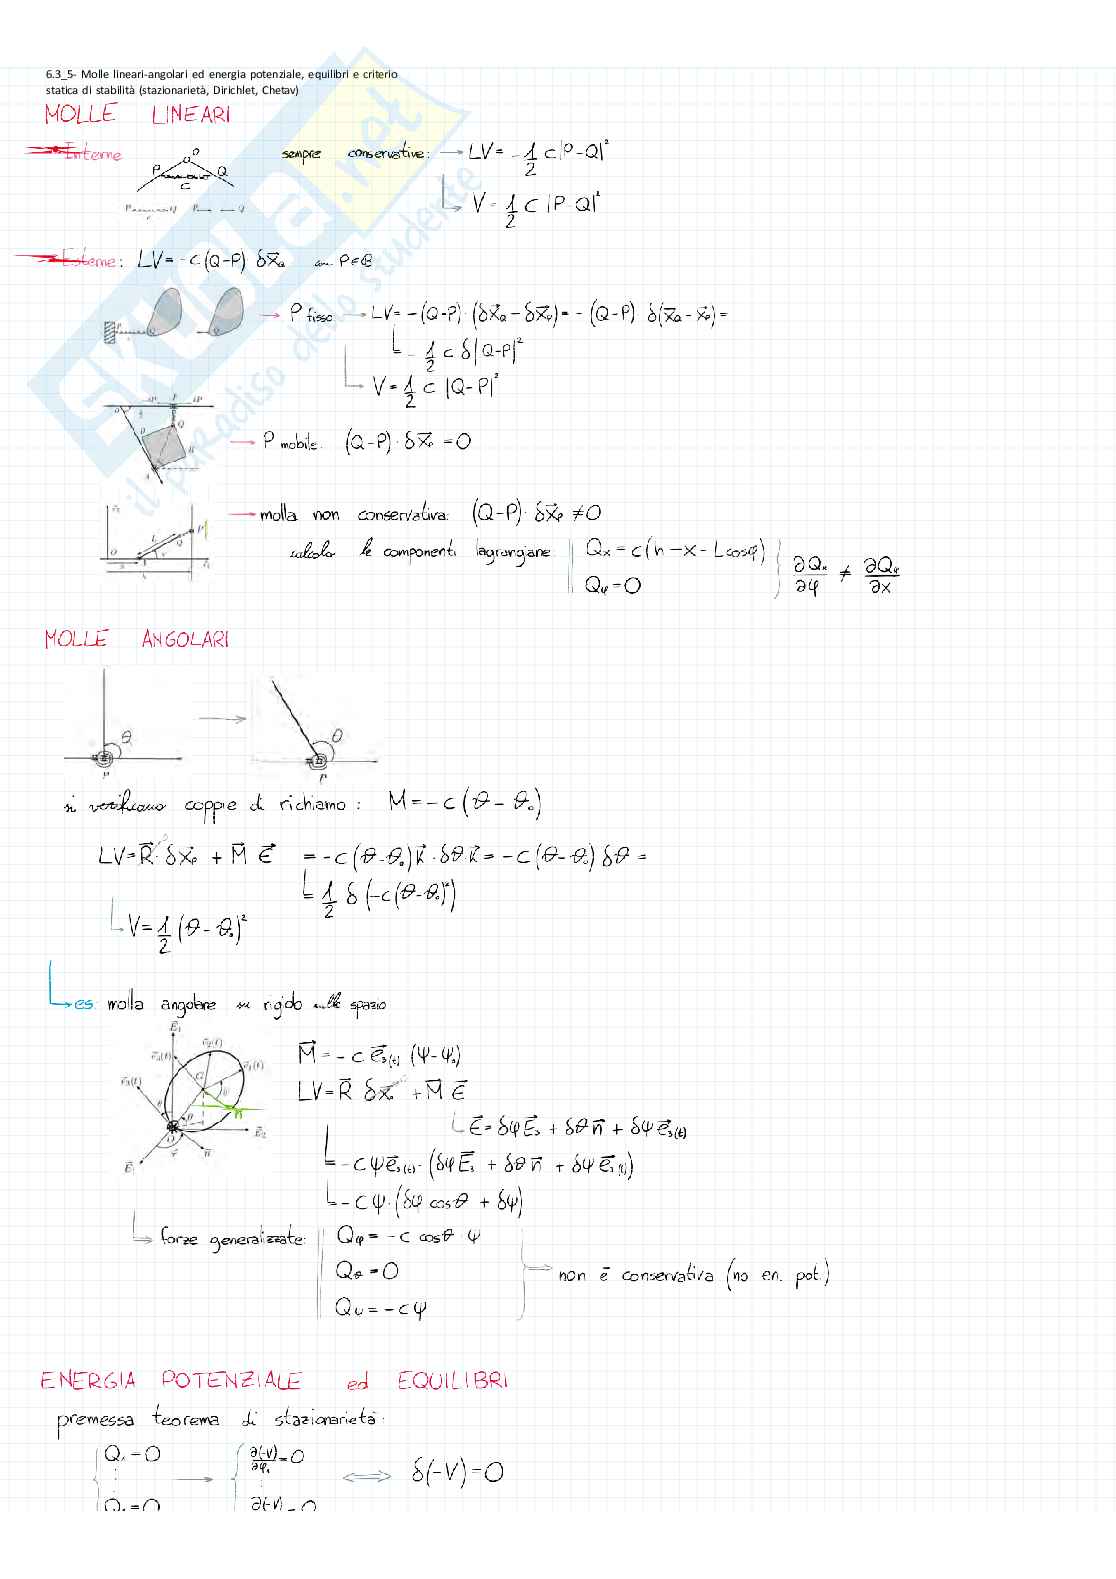 6.3_5- Molle lineari-angolari ed energia potenziale, equilibri e criterio
statica di stabilità (stazionarietà, Dirichlet, Chetav)
MOLLE LINEARI
Interne
sempre conservative: → LV = -1/2 c|P-Q|²
V = 1/2 c |P Q|²
Esterne: LV = -c(Q-P) δx⃗Q con P∈B
P fisso → LV = -(Q-P)·(δx⃗Q - δx⃗P) = -(Q-P) δ(x⃗Q - x⃗P) =
= -1/2 c δ|Q-P|²
V = 1/2 c |Q-P|²
→ P mobile: (Q-P)·δx⃗P = 0
→ molla non conservativa: (Q-P)·δx⃗P ≠ 0
calcolo le componenti lagrangiane: Qx = c(h-x-Lcosφ)
Qφ = 0
∂Qx/∂φ ≠ ∂Qφ/∂x
MOLLE ANGOLARI
θ → θ
P P
si verificano coppie di richiamo: M = -c(θ-θ₀)
LV = R⃗·δx⃗P + M⃗ E⃗ = -c(θ-θ₀)k⃗·δθk⃗ = -c(θ-θ₀)δθ =
= 1/2 δ(-c(θ-θ₀)²)
V = 1/2 (θ-θ₀)²
→ es: molla angolare su rigido nello spazio
M⃗ = -c e⃗₃(t) (ψ-ψ₀)
LV = R⃗ δx⃗ + M⃗ E⃗
E⃗ = δφE⃗₃ + δθn⃗ + δψe⃗₃(t)
= -cψe⃗₃(t)·(δφE⃗₃ + δθn⃗ + δψe⃗₃(t))
= -cψ·(δφ cosθ + δψ)
→ forze generalizzate: Qφ = -c cosθ·ψ
Qθ = 0
Qψ = -cψ
→ non è conservativa (no en. pot.)
ENERGIA POTENZIALE ed EQUILIBRI
premessa teorema di stazionarietà:
Q₁ = 0 → ∂(-V)/∂φ₁ = 0 ⟺ δ(-V) = 0
SKUOLA.net
il paradiso dello studente